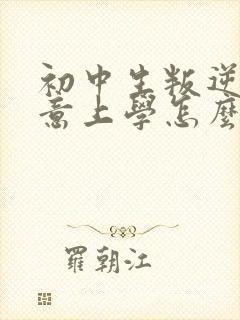 初中生叛逆
意上學怎麼
羅朝江